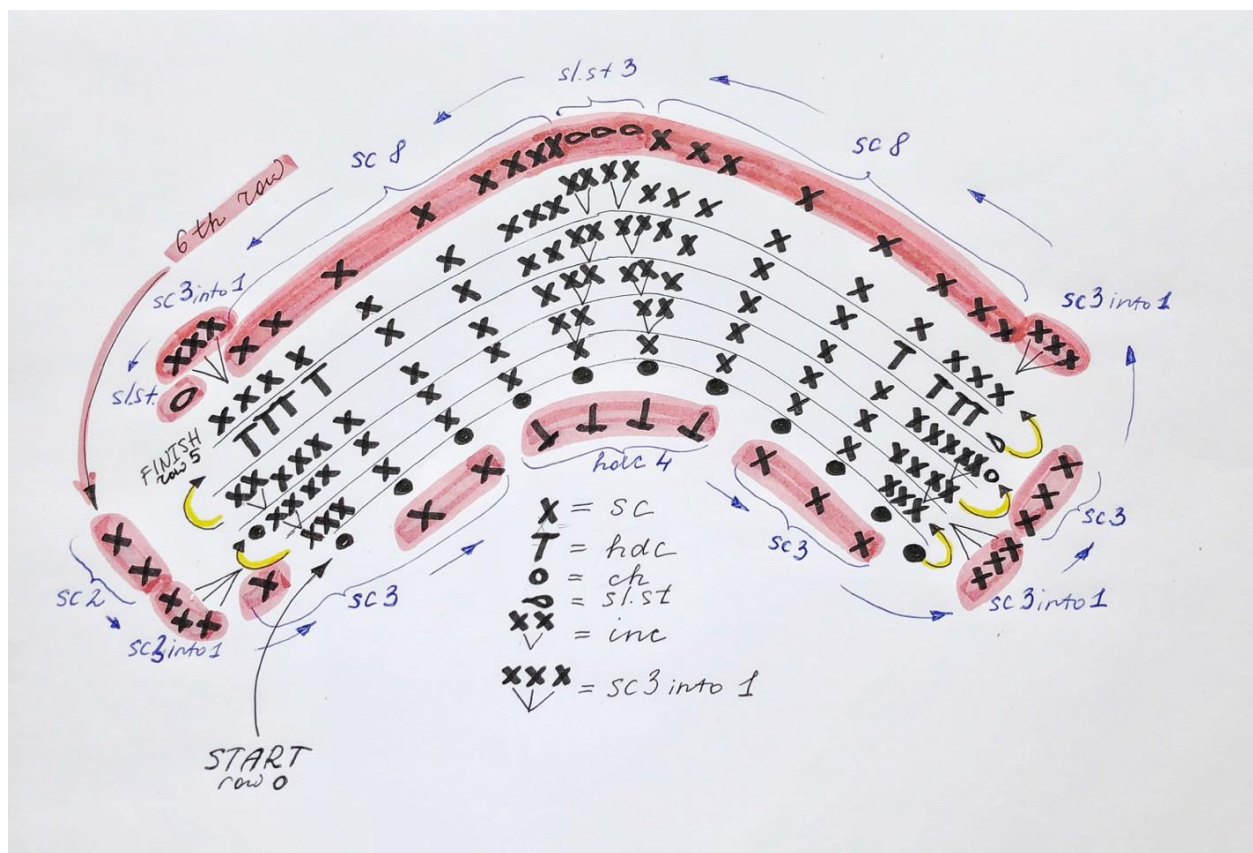 sl.st 3
sc 8
sc 8
6th row
sc 3 into 1
sc 3 into 1
sl.st.
FINISH
row 5
hdc 4
sc 3
sc 3
sc 2
sc 3
sc 3 into 1
sc 3 into 1
X = sc
T = hdc
O = ch
= sl.st
XX = inc
XXX = sc 3 into 1
START
row 0